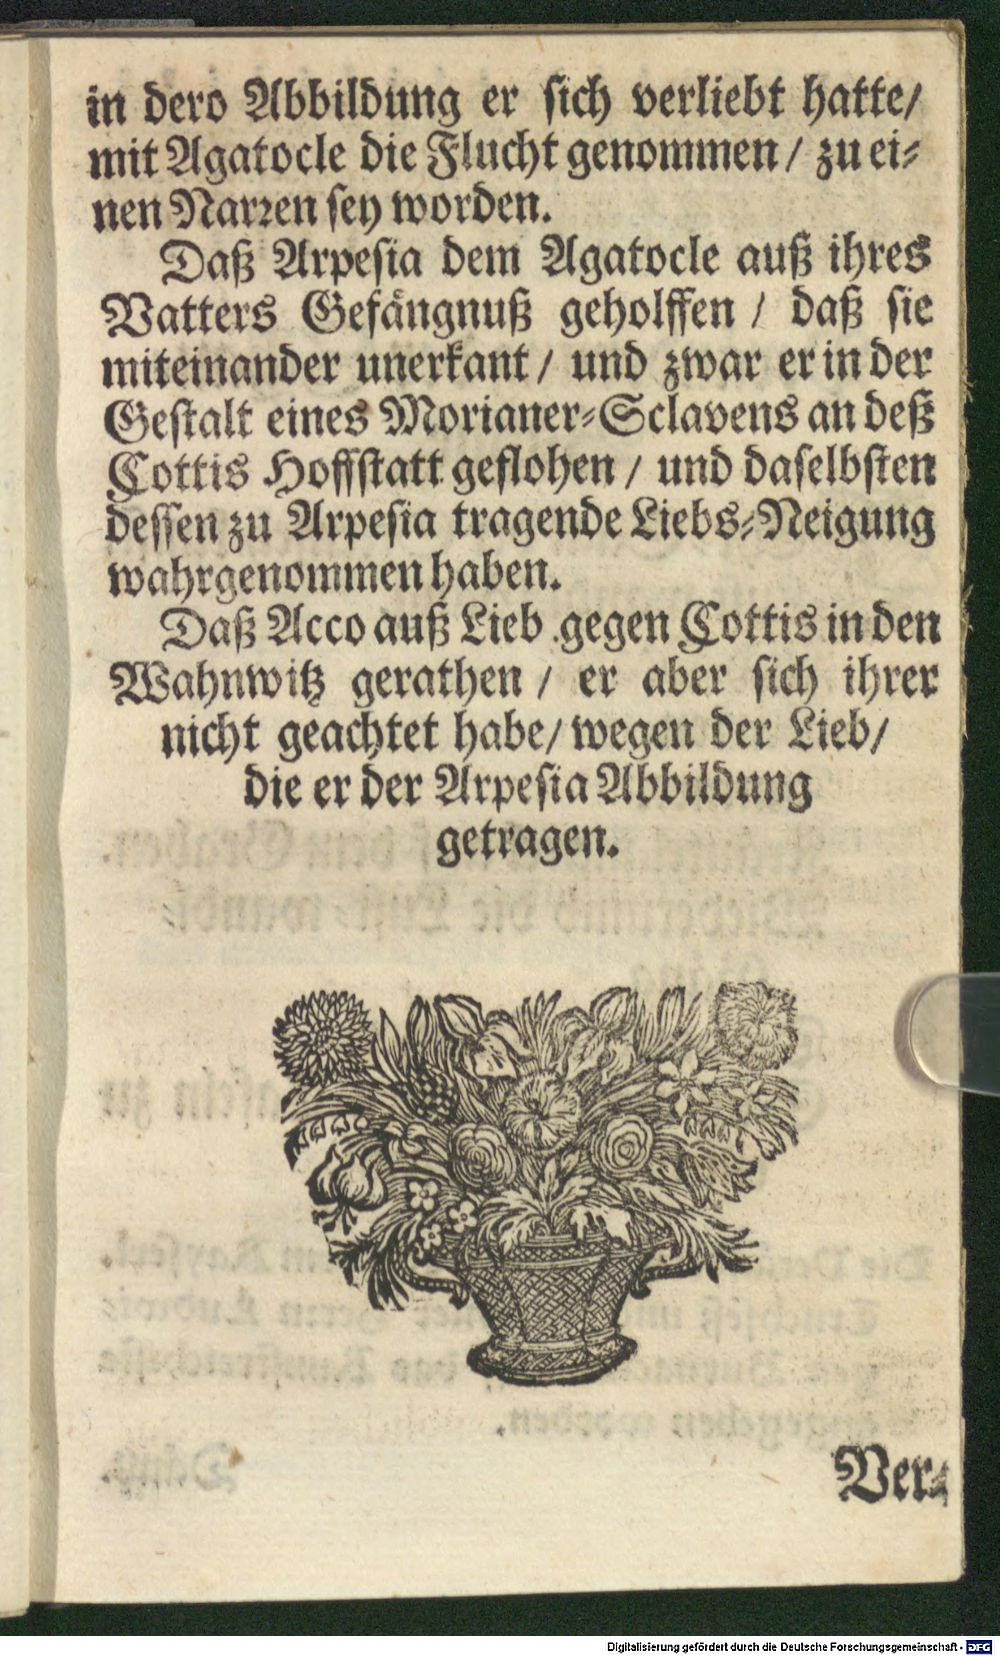 in dero Abbildung er sich verliebt hatte/
mit Agatocle die Flucht genommen / zu ei-
nen Narren sey worden.
Daß Arpesia dem Agatocle auß ihres
Vatters Gefängnuß geholffen / daß sie
miteinander unerkant / und zwar er in der
Gestalt eines Morianer-Sclavens an deß
Cottis Hoffstatt geflohen / und daselbsten
dessen zu Arpesia tragende Liebs-Neigung
wahrgenommen haben.
Daß Acco auß Lieb gegen Cottis in den
Wahnwitz gerathen / er aber sich ihrer
nicht geachtet habe/ wegen der Lieb/
die er der Arpesia Abbildung
getragen.
Ver-
Digitalisierung gefördert durch die Deutsche Forschungsgemeinschaft - DFG